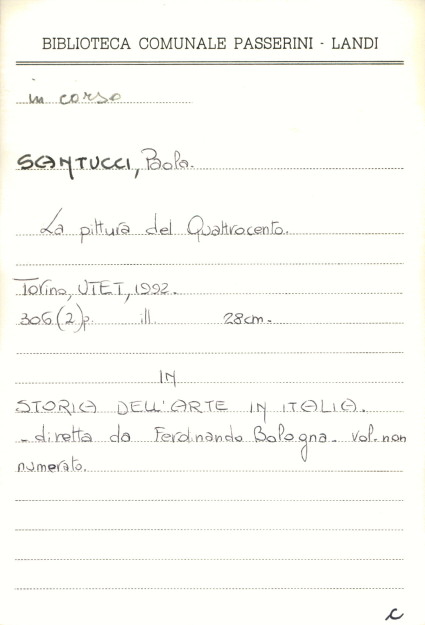 BIBLIOTECA COMUNALE PASSERINI - LANDI
in corso
SANTUCCI, Paola.
La pittura del Quattrocento.
Torino, UTET, 1992.
306(2)p. ill. 28cm.
IN
STORIA DELL'ARTE IN ITALIA.
- diretta da Ferdinando Bologna. vol. non
numerato.
c